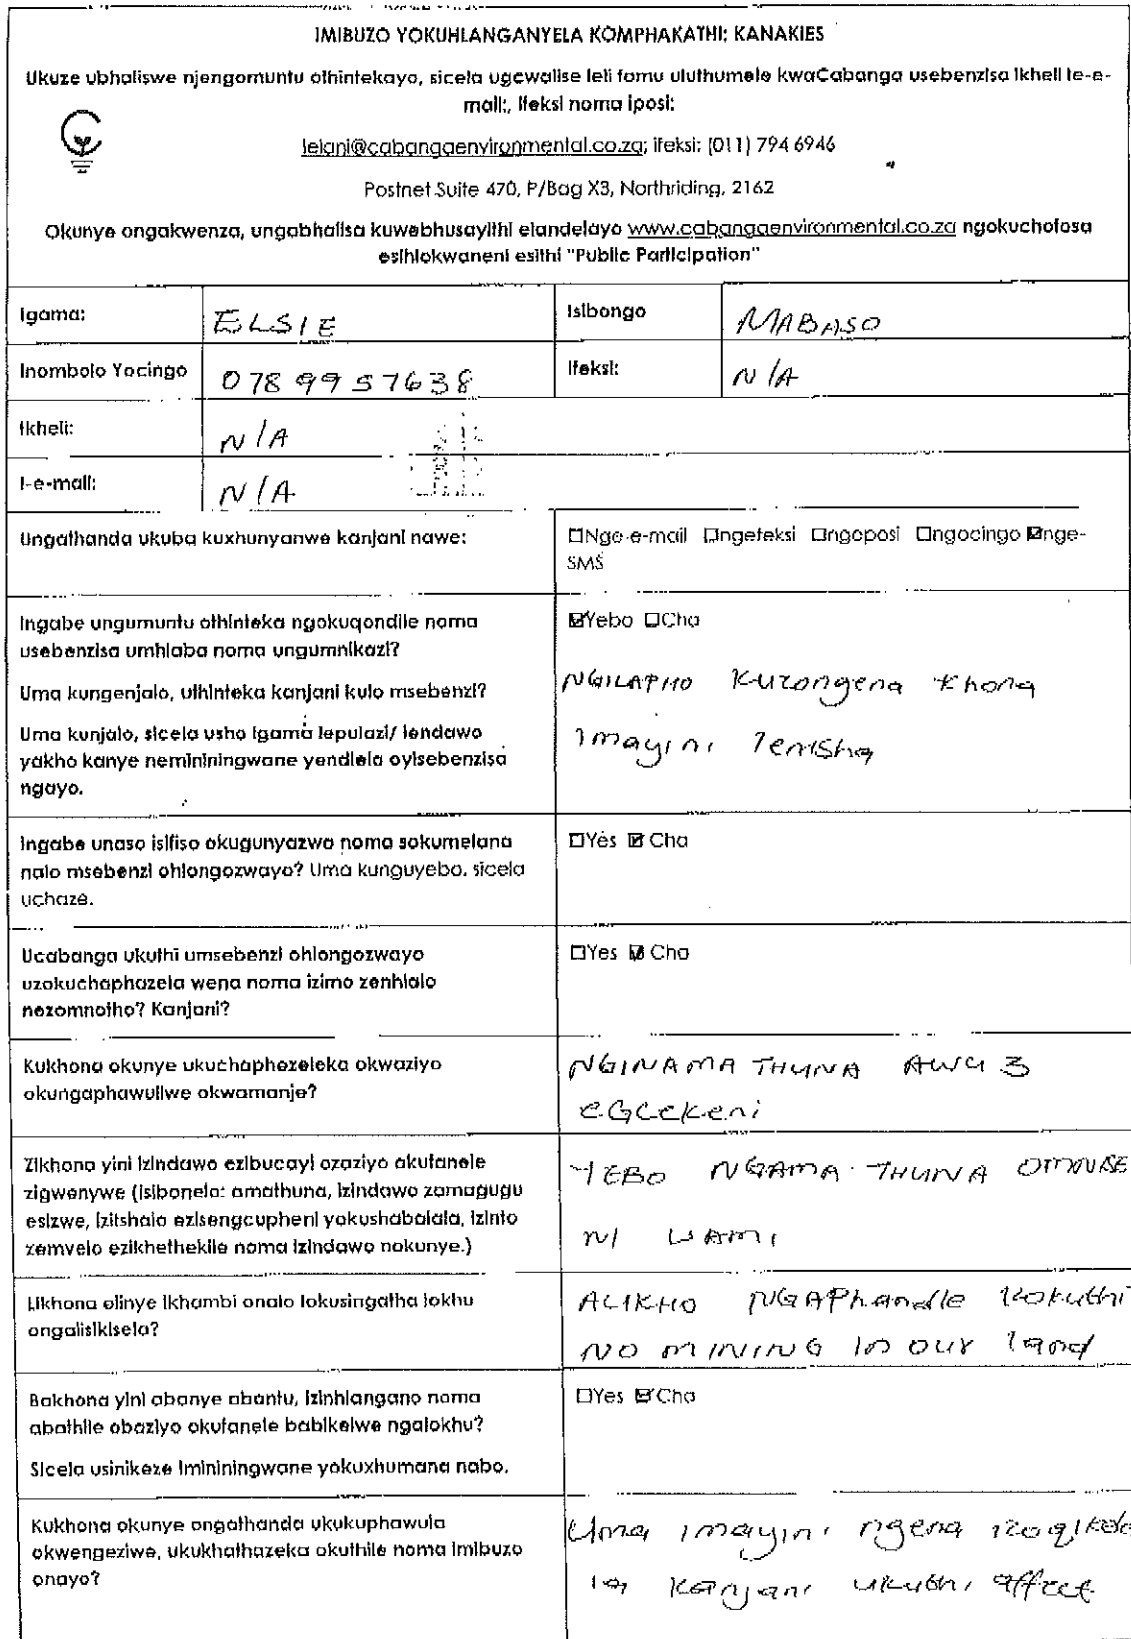 IMIBUZO YOKUHLANGANYELA KOMPHAKATHI: KANAKIES
Ukuze ubhaliswe njengomuntu othintekayo, sicela ugcwalise leli fomu uluthumele kwaCabanga usebenzisa ikheli le-e-
mail:, ifeksi noma iposi:
lelani@cabangaenvironmental.co.za; ifeksi: (011) 794 6946
Postnet Suite 470, P/Bag X3, Northriding, 2162
Okunye ongakwenza, ungabhalisa kuwebhusayithi elandelayo www.cabangaenvironmental.co.za ngokuchofosa
esihlokwaneni esithi "Public Participation"
Igama: ELSIE Isibongo MABASO
Inombolo Yocingo 0789957638 Ifeksi: N/A
Ikheli: N/A
I-e-mail: N/A
Ungathanda ukuba kuxhunyanwe kanjani nawe: ☐Nge-e-mail ☐ngefeksi ☐ngeposi ☐ngocingo ☑nge-
SMS
Ingabe ungumuntu othinteka ngokuqondile noma
usebenzisa umhlaba noma ungumnikazi?
Uma kungenjalo, uthinteka kanjani kulo msebenzi?
Uma kunjalo, sicela usho igama lepulazi/ lendawo
yakho kanye nemininingwane yendlela oyisebenzisa
ngayo.
☑Yebo ☐Cha
NGILAPHO kuzongena khona
imayini lentsha
Ingabe unaso isifiso okugunyazwa noma sokumelana
nalo msebenzi ohlongozwayo? Uma kunguyebo, sicela
uchaze.
☐Yes ☑ Cha
Ucabanga ukuthi umsebenzi ohlongozwayo
uzokuchaphazela wena noma izimo zenhlalo
nezomnotho? Kanjani?
☐Yes ☑ Cha
Kukhona okunye ukuchaphazeleka okwaziyo
okungaphawuliwe okwamanje?
NGINAMA THUNA AWU 3
eGcekeni
Zikhona yini izindawo ezibucayi ozaziyo okufanele
zigwenywe (isibonelo: amathuna, izindawo zamagugu
esizwe, izitshalo ezisengcupheni yokushabalala, izinto
zemvelo ezikhethekile noma izindawo nokunye.)
YEBO NGAMA THUNA OMNDE
NI WAMI
Likhona elinye ikhambi onalo lokusingatha lokhu
ongalisikisela?
ALIKHO NGAPhandle kokuthi
NO MINING in our land
Bakhona yini abanye abantu, izinhlangano noma
abathile obaziyo okufanele babikelwe ngalokhu?
Sicela usinikeze imininingwane yokuxhumana nabo.
☐Yes ☑Cha
Kukhona okunye ongathanda ukukuphawula
okwengeziwe, ukukhathazeka okuthile noma imibuzo
onayo?
Uma imayini ngena
kanjani ukuthi affect